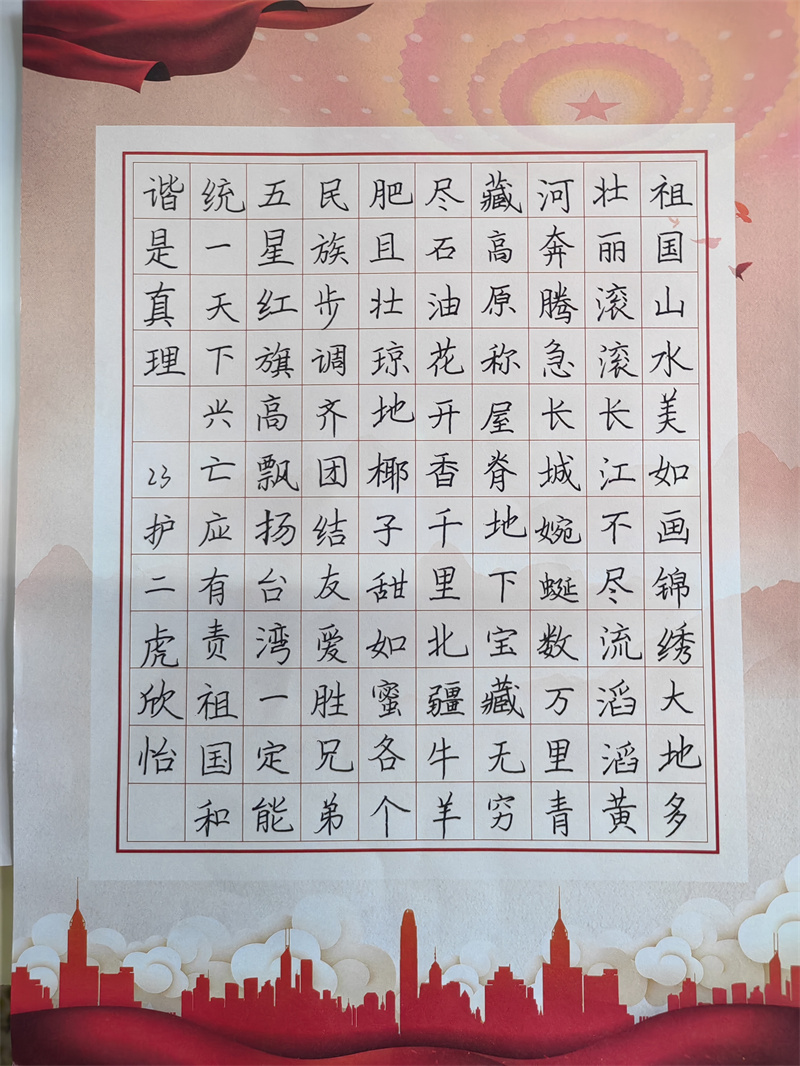 祖国山水美如画锦绣大地多
壮丽滚滚长江不尽流滔滔黄
河奔腾急长城婉蜒数万里青
藏高原称屋脊地下宝藏无穷
尽石油花开香千里北疆牛羊
肥且壮琼地椰子甜如蜜各个
民族步调齐团结友爱胜兄弟
五星红旗高飘扬台湾一定能
统一天下兴亡应有责祖国和
谐是真理
23护二虎欣怡